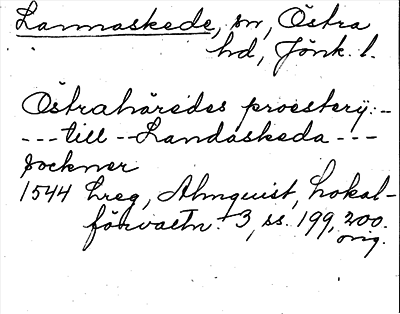 Lannaskede, sn, Östra
hd, Jönk. l.
Östrahäredes proesterij --
--- till -- Landaskeda ---
sockner
1544 Lreg, Almquist, Lokal-
förvaltn. 3, ss. 199, 200.
orig.